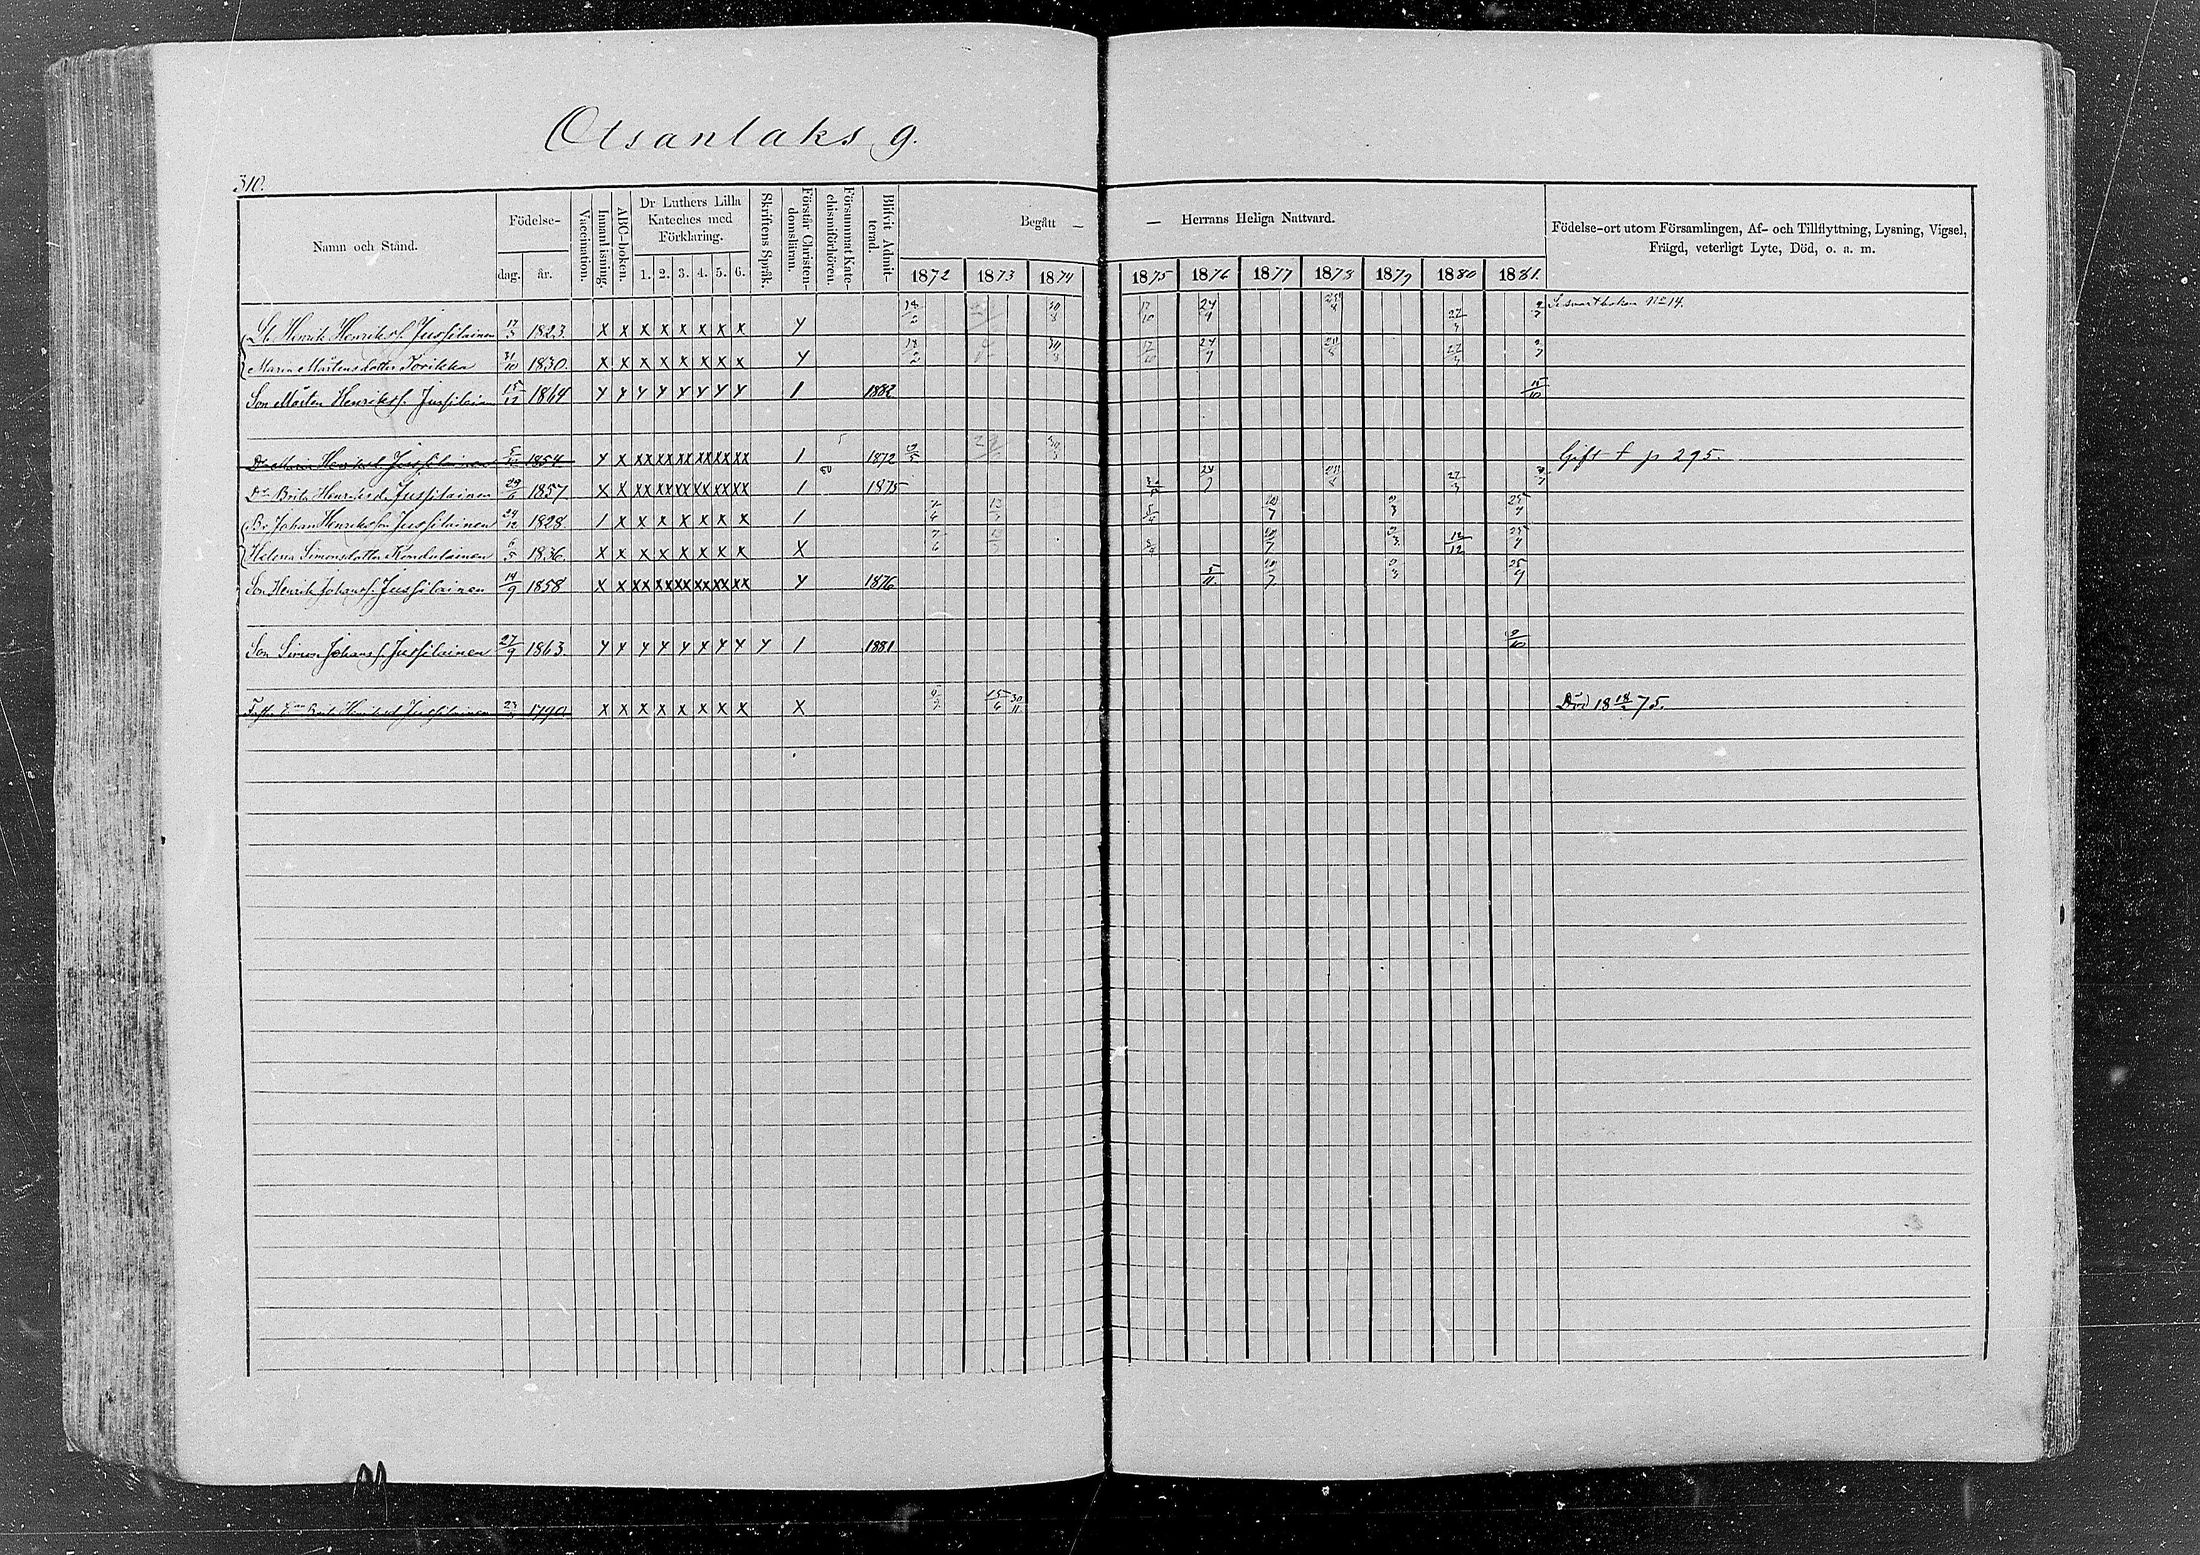 Otsanlaks 9.
310.
Namn och Stånd.
Födelse-
dag. år.
Vaccination.
Innanläsning
ABC-boken.
Dr Luthers Lilla
Kateches med
Förklaring.
1. 2. 3. 4. 5. 6.
Skriftens Språk.
Förstår Christen-
domsläran.
Försummat Kate-
chismiförhören.
Blifvit Admit-
terad.
Begått — — Herrans Heliga Nattvard.
1872 1873 1874 1875 1876 1877 1878 1879 1880 1881.
Födelse-ort utom Församlingen, Af- och Tillflyttning, Lysning, Vigsel,
Frägd, veterligt Lyte, Död, o. a. m.
Henrik Henrikss. Jussilainen 17/3 1823. X X X X X X X X Y 18/2 30/8 17/10 24/9 27/3 Se svartboken No 14.
Maria Mårtensdotter Torikka 31/10 1830. X X X X X X X X Y 18/2 30/8 17/10 24/9 27/3
Son Mårten Henrikss. Jussilainen 15/12 1864 Y Y Y Y Y Y Y Y 1 1882 15/10
Maria Henriksd. Jussilainen 1854 Y X XX XX XX XX XX XX 1 1872 Gift t p 295.
Dr Brita Henriksd. Jussilainen 29/6 1857 X X XX XX XX XX XX XX 1 1875 24/9 27/3
Br. Johan Henriksson Jussilainen 24/12 1828 1 X X X X X X X 1 5/4 10/7 25/9
Helena Simonsdotter Kondulainen 6/5 1836. X X X X X X X X X 5/4 10/7 12/12 25/9
Son Henrik Johanss. Jussilainen 14/9 1858 X X XX XX XX XX XX XX Y 1876 5/11 10/7 25/9
Son Simon Johanss. Jussilainen 27/9 1863. Y Y Y Y Y X Y Y Y 1 1881 9/10
Brita Henriksd. Jussilainen 1790 X X X X X X X X X 15/6 30/11 Död 18 75.